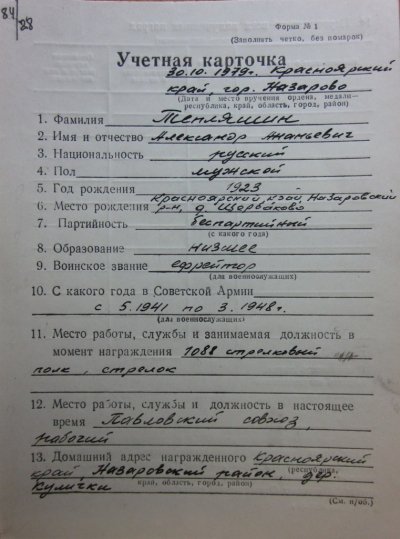 84
28
Форма № 1
(Заполнять четко, без помарок)
Учетная карточка
30.10.1979г. Красноярский
край, гор. Назарово
(Дата и место вручения ордена, медали—
республика, край, область, город, район)
1. Фамилия Тенляшин
2. Имя и отчество Александр Ананьевич
3. Национальность русский
4. Пол мужской
5. Год рождения 1923
6. Место рождения Красноярский край, Назаровский
р-н, д. Щербаково
7. Партийность беспартийный
(с какого года)
8. Образование низшее
9. Воинское звание ефрейтор
(для военнослужащих)
10. С какого года в Советской Армии
с 5.1941 по 3.1948г.
(для военнослужащих)
11. Место работы, службы и занимаемая должность в
момент награждения 1088 стрелковый
полк, стрелок
12. Место работы, службы и должность в настоящее
время Павловский совхоз,
рабочий
13. Домашний адрес награжденного Красноярский
край, Назаровский район, дер.
(республика,
Кулички
край, область, город, район)
(См. н/об.)